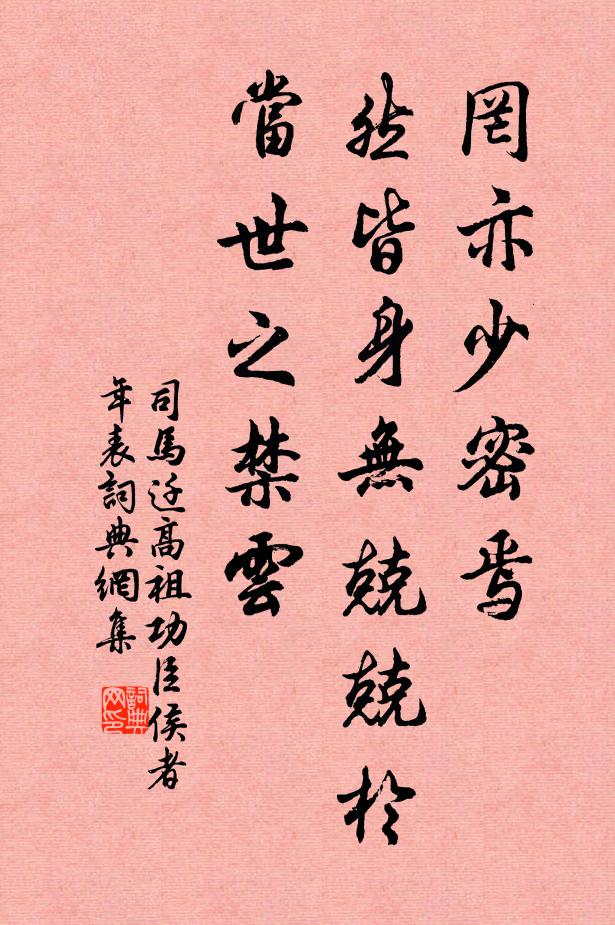 罔亦少密焉
然皆身無兢兢於
當世之禁雲
司馬迁高祖功臣侯者
年表詞典網集
詞典
网印